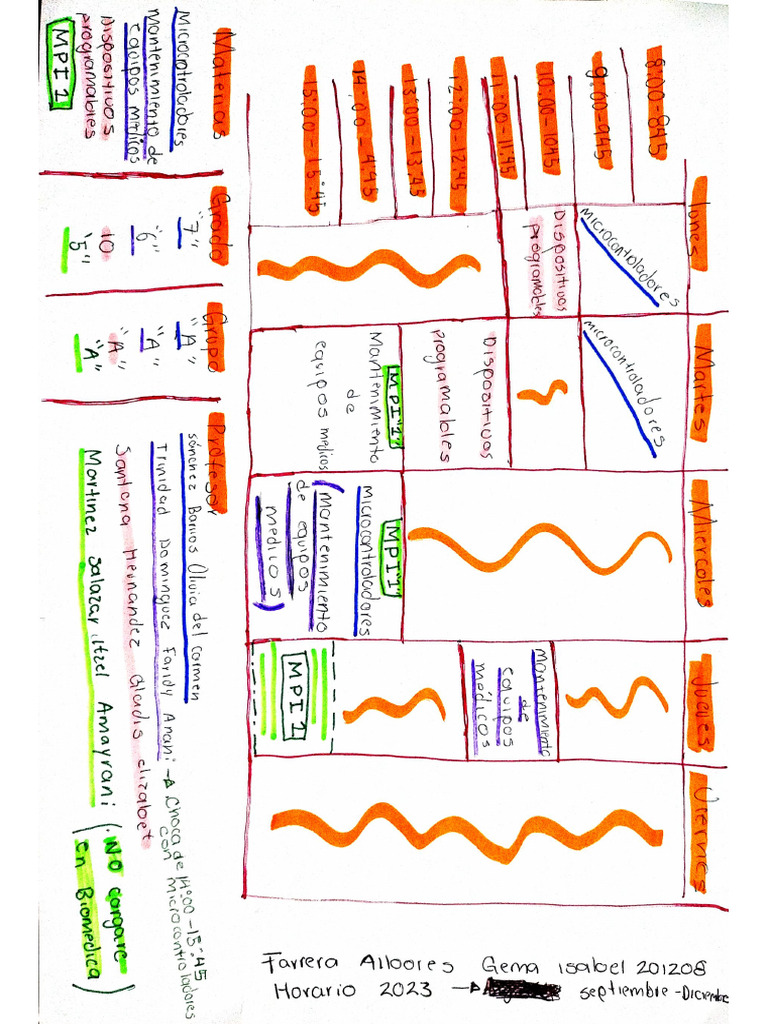 lunes
Martes
Miercoles
Jueves
Viernes
8:00-845
9:00-945
10:00-1045
11:00-11:45
12:00-12:45
13:00-13:45
14:00-4:45
15:00-15:45
microcontroladores
Dispositivos
programables
microcontroladores
Dispositivos
programables
MPI 1
Mantenimiento
de
equipos medicos
MPI 1
microcontroladores
(mantenimiento
de equipos
medicos)
mantenimiento
de
equipos
médicos
MPI 1
Materias
Grado
Grupo
Profesor
Microcontroladores
"7"
"A"
sánchez Barrios Olivia del carmen
Mantenimiento de
equipos medicos
"6"
"A"
Trinidad Dominguez Faridy Anani → Choca de 14:00-15:45
con Microcontroladores
Dispositivos
programables
10
"A"
Santana Hernandez Gladis elizabet
MPI 1
"5"
"A"
Martinez Salazar Itzel Amayrani (NO cargare
en Biomedica)
Farrera Albores Gema isabel 201208
Horario 2023 → septiembre-Diciembre